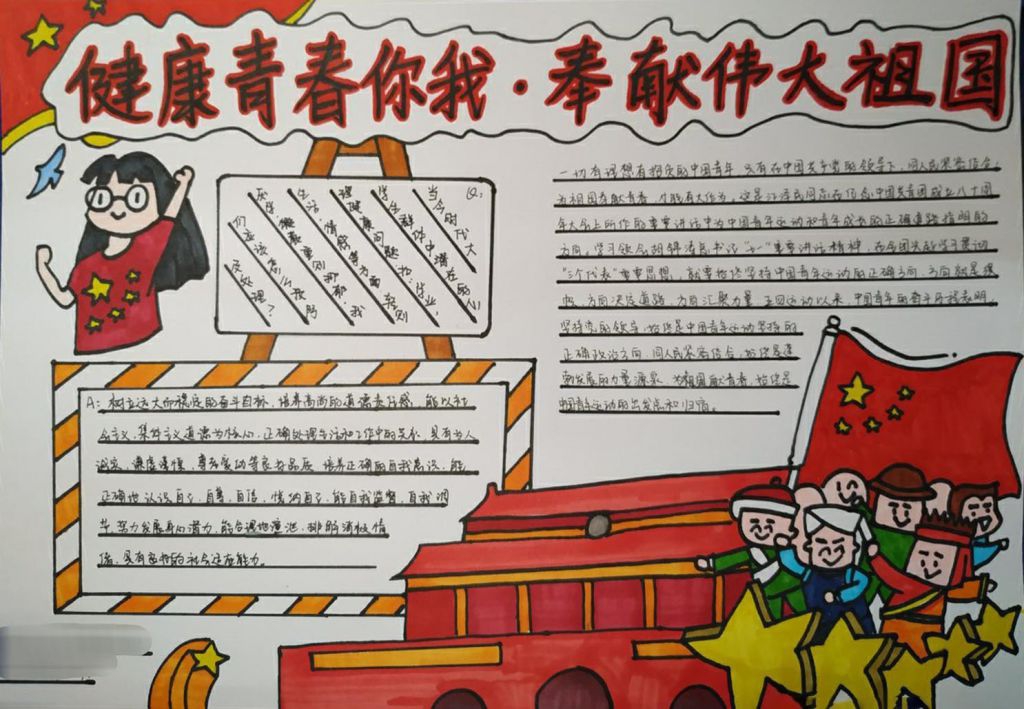 健康青春你我·奉献伟大祖国
Q:
当今时代大
学生群体中潜在的心
理健康问题为:就业,
生活、情感等方面,
厌学、懒惰,重则抑郁。我
们应该怎么开导
及处理?
一切有理想有抱负的中国青年,只有在中国共产党的领导下,同人民紧密结合,
为祖国奉献青春,才能有大作为。这是江泽民同志在纪念中国共青团成立八十周
年大会上所作的重要讲话中为中国青年运动和青年成长的正确道路指明的
方向。学习领会胡锦涛总书记“七一”重要讲话精神,在全团兴起学习贯彻
“三个代表”重要思想,就要始终坚持中国青年运动的正确方向。方向就是旗
帜,方向决定道路,方向汇聚力量。五四运动以来,中国青年的奋斗历程表明,
坚持党的领导,始终是中国青年运动坚持的
正确政治方向,同人民紧密结合,始终是蓬
勃发展的力量源泉,为祖国献青春,始终是
中国青年运动的出发点和归宿。
A:树立远大而稳定的奋斗目标,培养高尚的道德责任感,能以社
会主义,集体主义道德为核心,正确处理生活和工作中的关系,具有为人
诚实,谦虚谨慎,勤劳等良好品质,培养正确的自我意识,能
正确地认识自己,自尊,自信,悦纳自己,能自我监督,自我调
节,努力发展身心潜力,能合理地宣泄、排解消极情
绪,具有良好的社会适应能力。